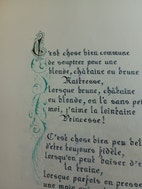 C'est chose bien commune
de soupirer pour une
blonde, châtaine ou brune
Maîtresse,
Lorsque brune, châtaine
ou blonde, on l'a sans peine
moi, j'aime la lointaine
Princesse!
C'est chose bien peu belle
d'être toujours fidèle,
lorsqu'on peut baiser d'elle
la traîne,
lorsque parfois on presse
une main